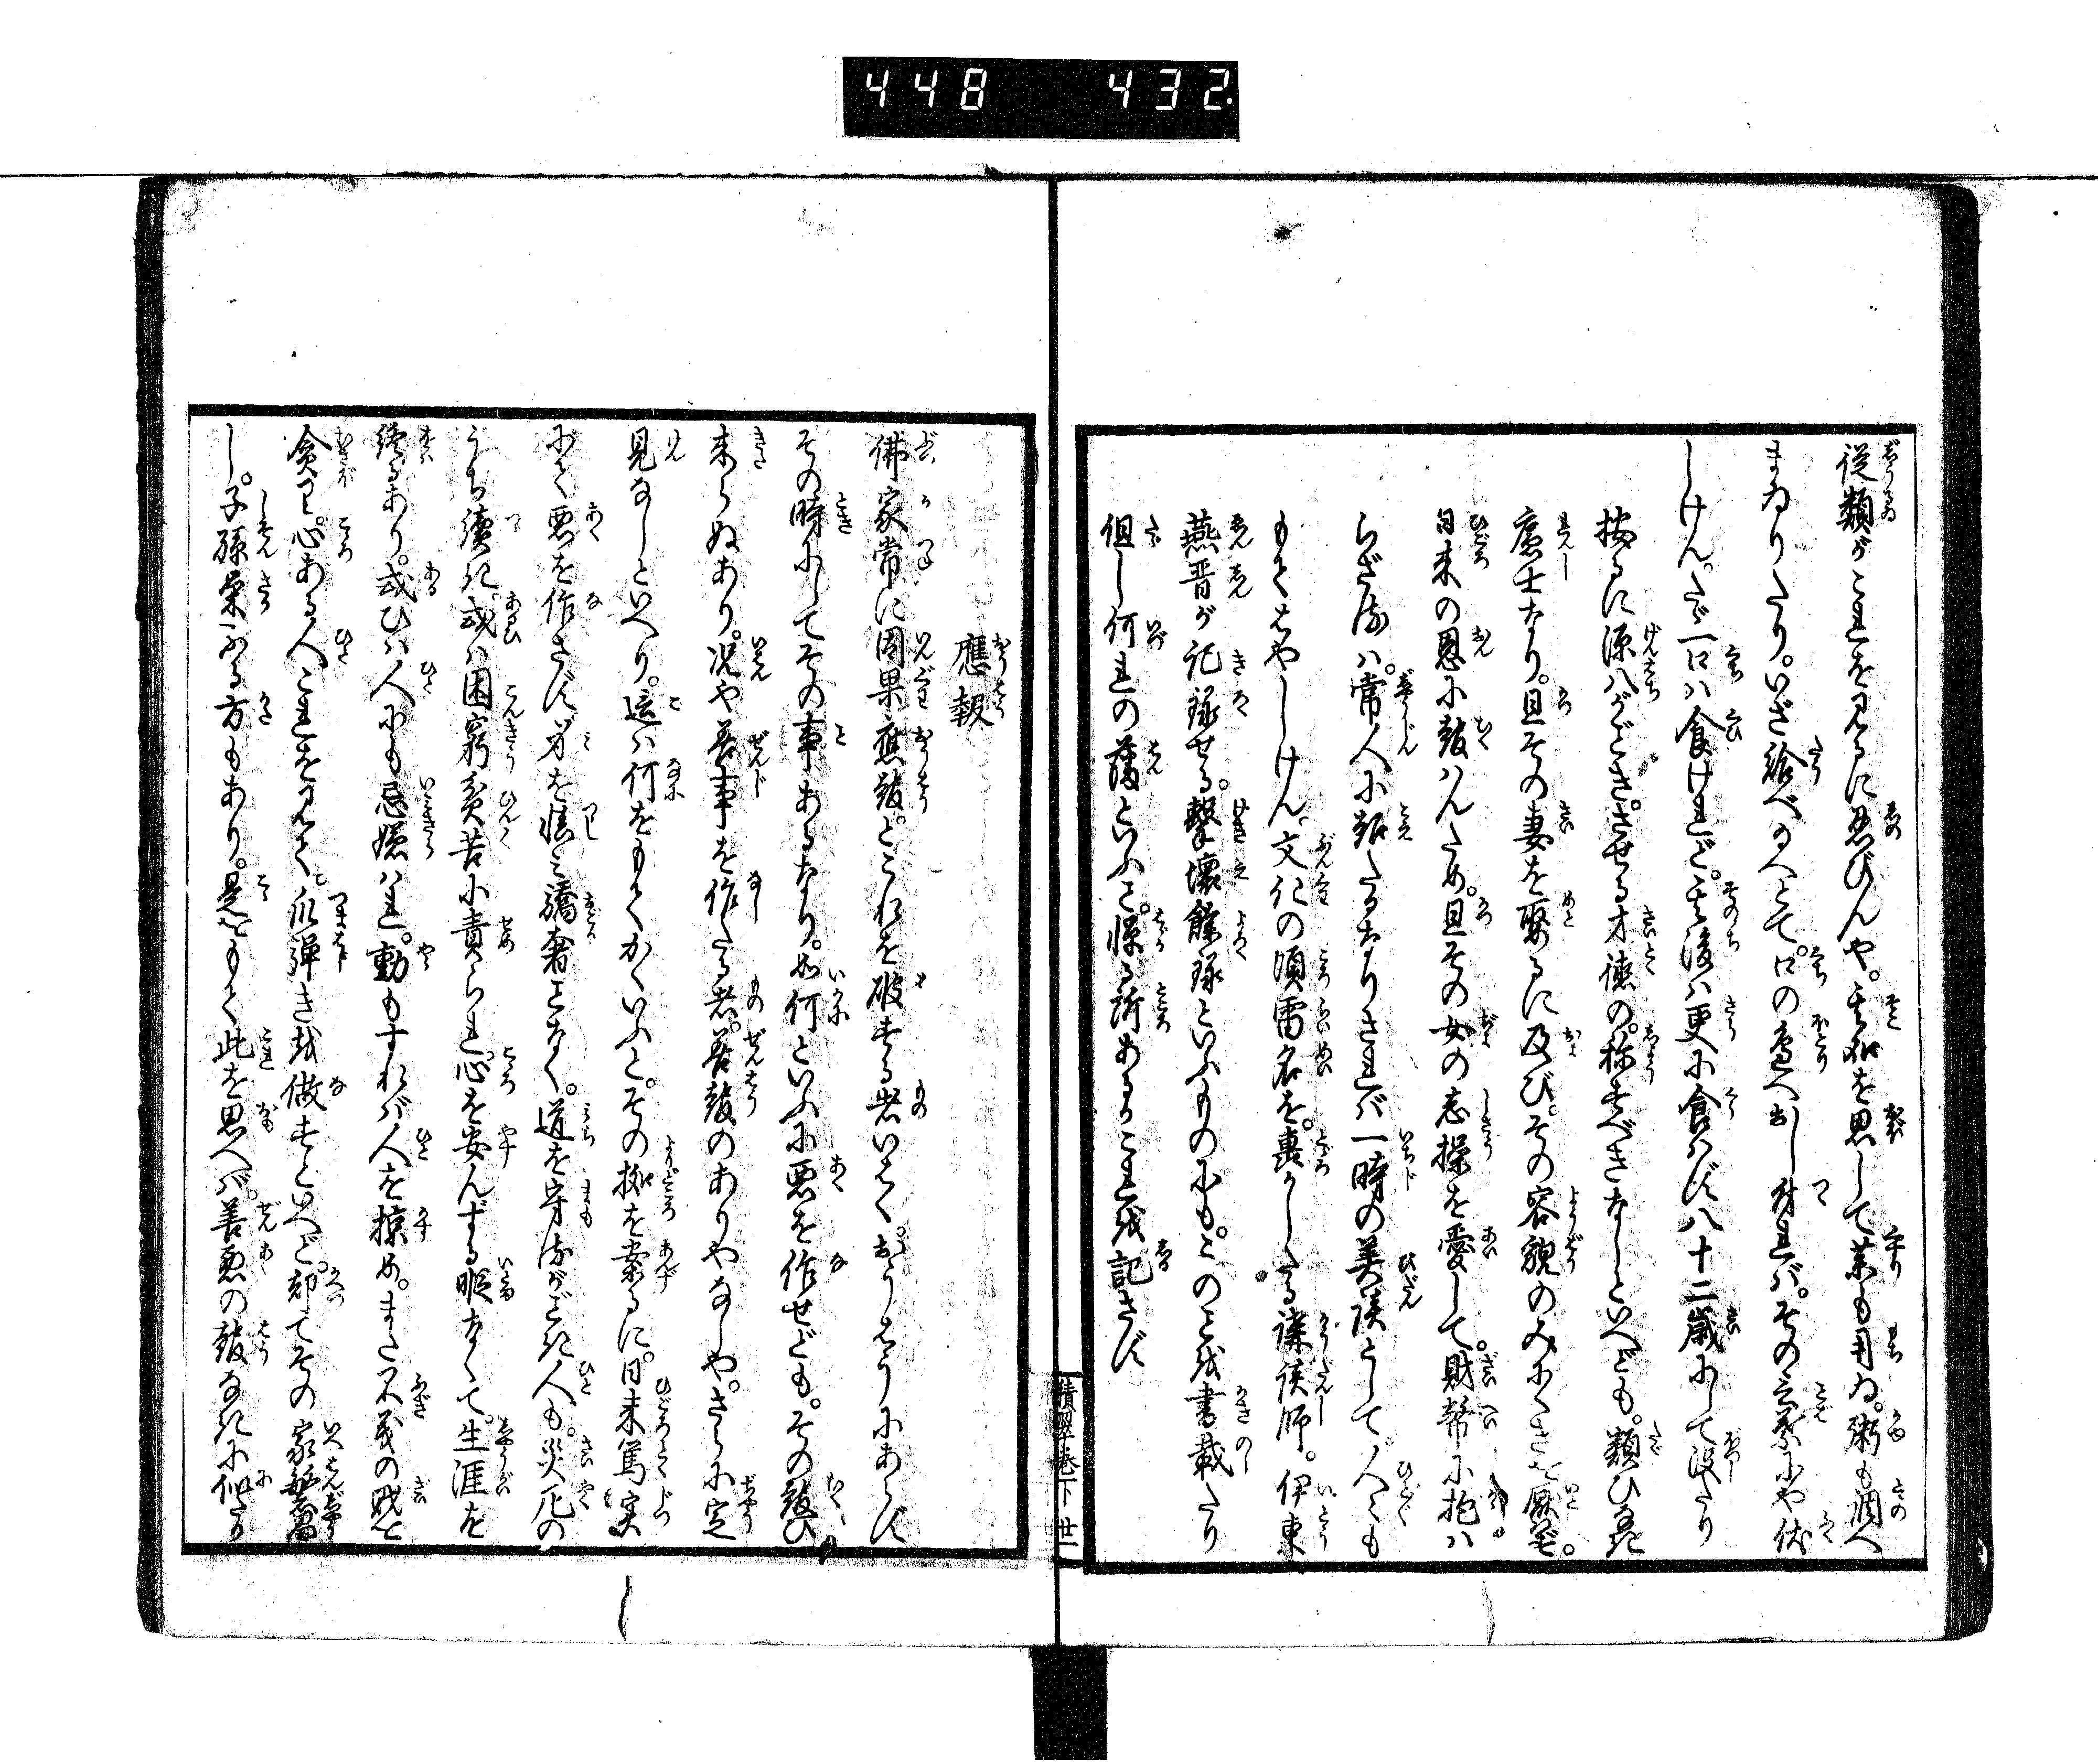 448 432
従類がこれを見るに忍びんや。其邪を思して薬も用ゐ。粥も調へ
まゐりたり。いざ給べ給へとて。口の邊へ出し附れば。その言葉にや伏
しけん。たゞ一口は食けれど。其後は更に食はず八十二歳にして没たり
按るに源八がごとき。させる才徳の。称すべきなしといへども。類ひなき
廉士なり。且その妻を娶るに及び。その容貌のみにくきを厭ず。
日来の恩に報はんため。且その女の志操を愛して。財幣に抱は
らざるは。常人に超たるなりされば一時の美談として。人々も
もてはやしけん。文化の頃雷名を。轟かしたる講談師。伊東
燕晋が記録せる。撃壊餘録といふものにも。このこと書載たり
但し何れの藩といふこと。憚る所あるこれ記さず
積翠巻下 廿二
應報
佛家常に因果應報。とこれを破する者いはく。おうほうにあらず
その時にしてその事あるなり。如何といふに悪を作せども。その報ひ
来らぬあり。况や善事を作したる者。善報のありやなしや。さらに定
見なしといへり。這は何をもてかくいふと。その拠を案るに。日来篤実
にて悪を作さず身を慎み驕奢ことなく。道を守るがごとき人も。災厄の
うち續き。或は困窮貧苦に責られ心を安んずる暇なくて。生涯を
終るあり。或ひは人にも忌嫌はれ。動もすれば人を掠め。また不義の財を
貪り。心ある人これを見て。爪弾き做すといへど。却てその家繁富
し。子孫栄ふる方もあり。是をもて此を思へば。善悪の報なきに似たり